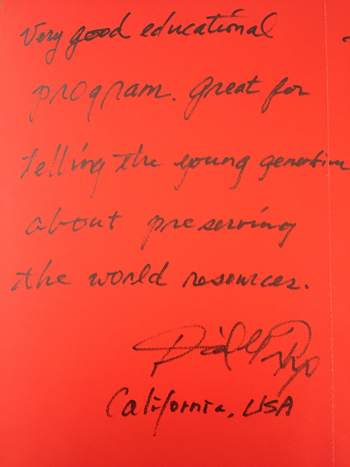 Very good educational
program. Great for
telling the young generation
about preserving
the world resources.
California, USA